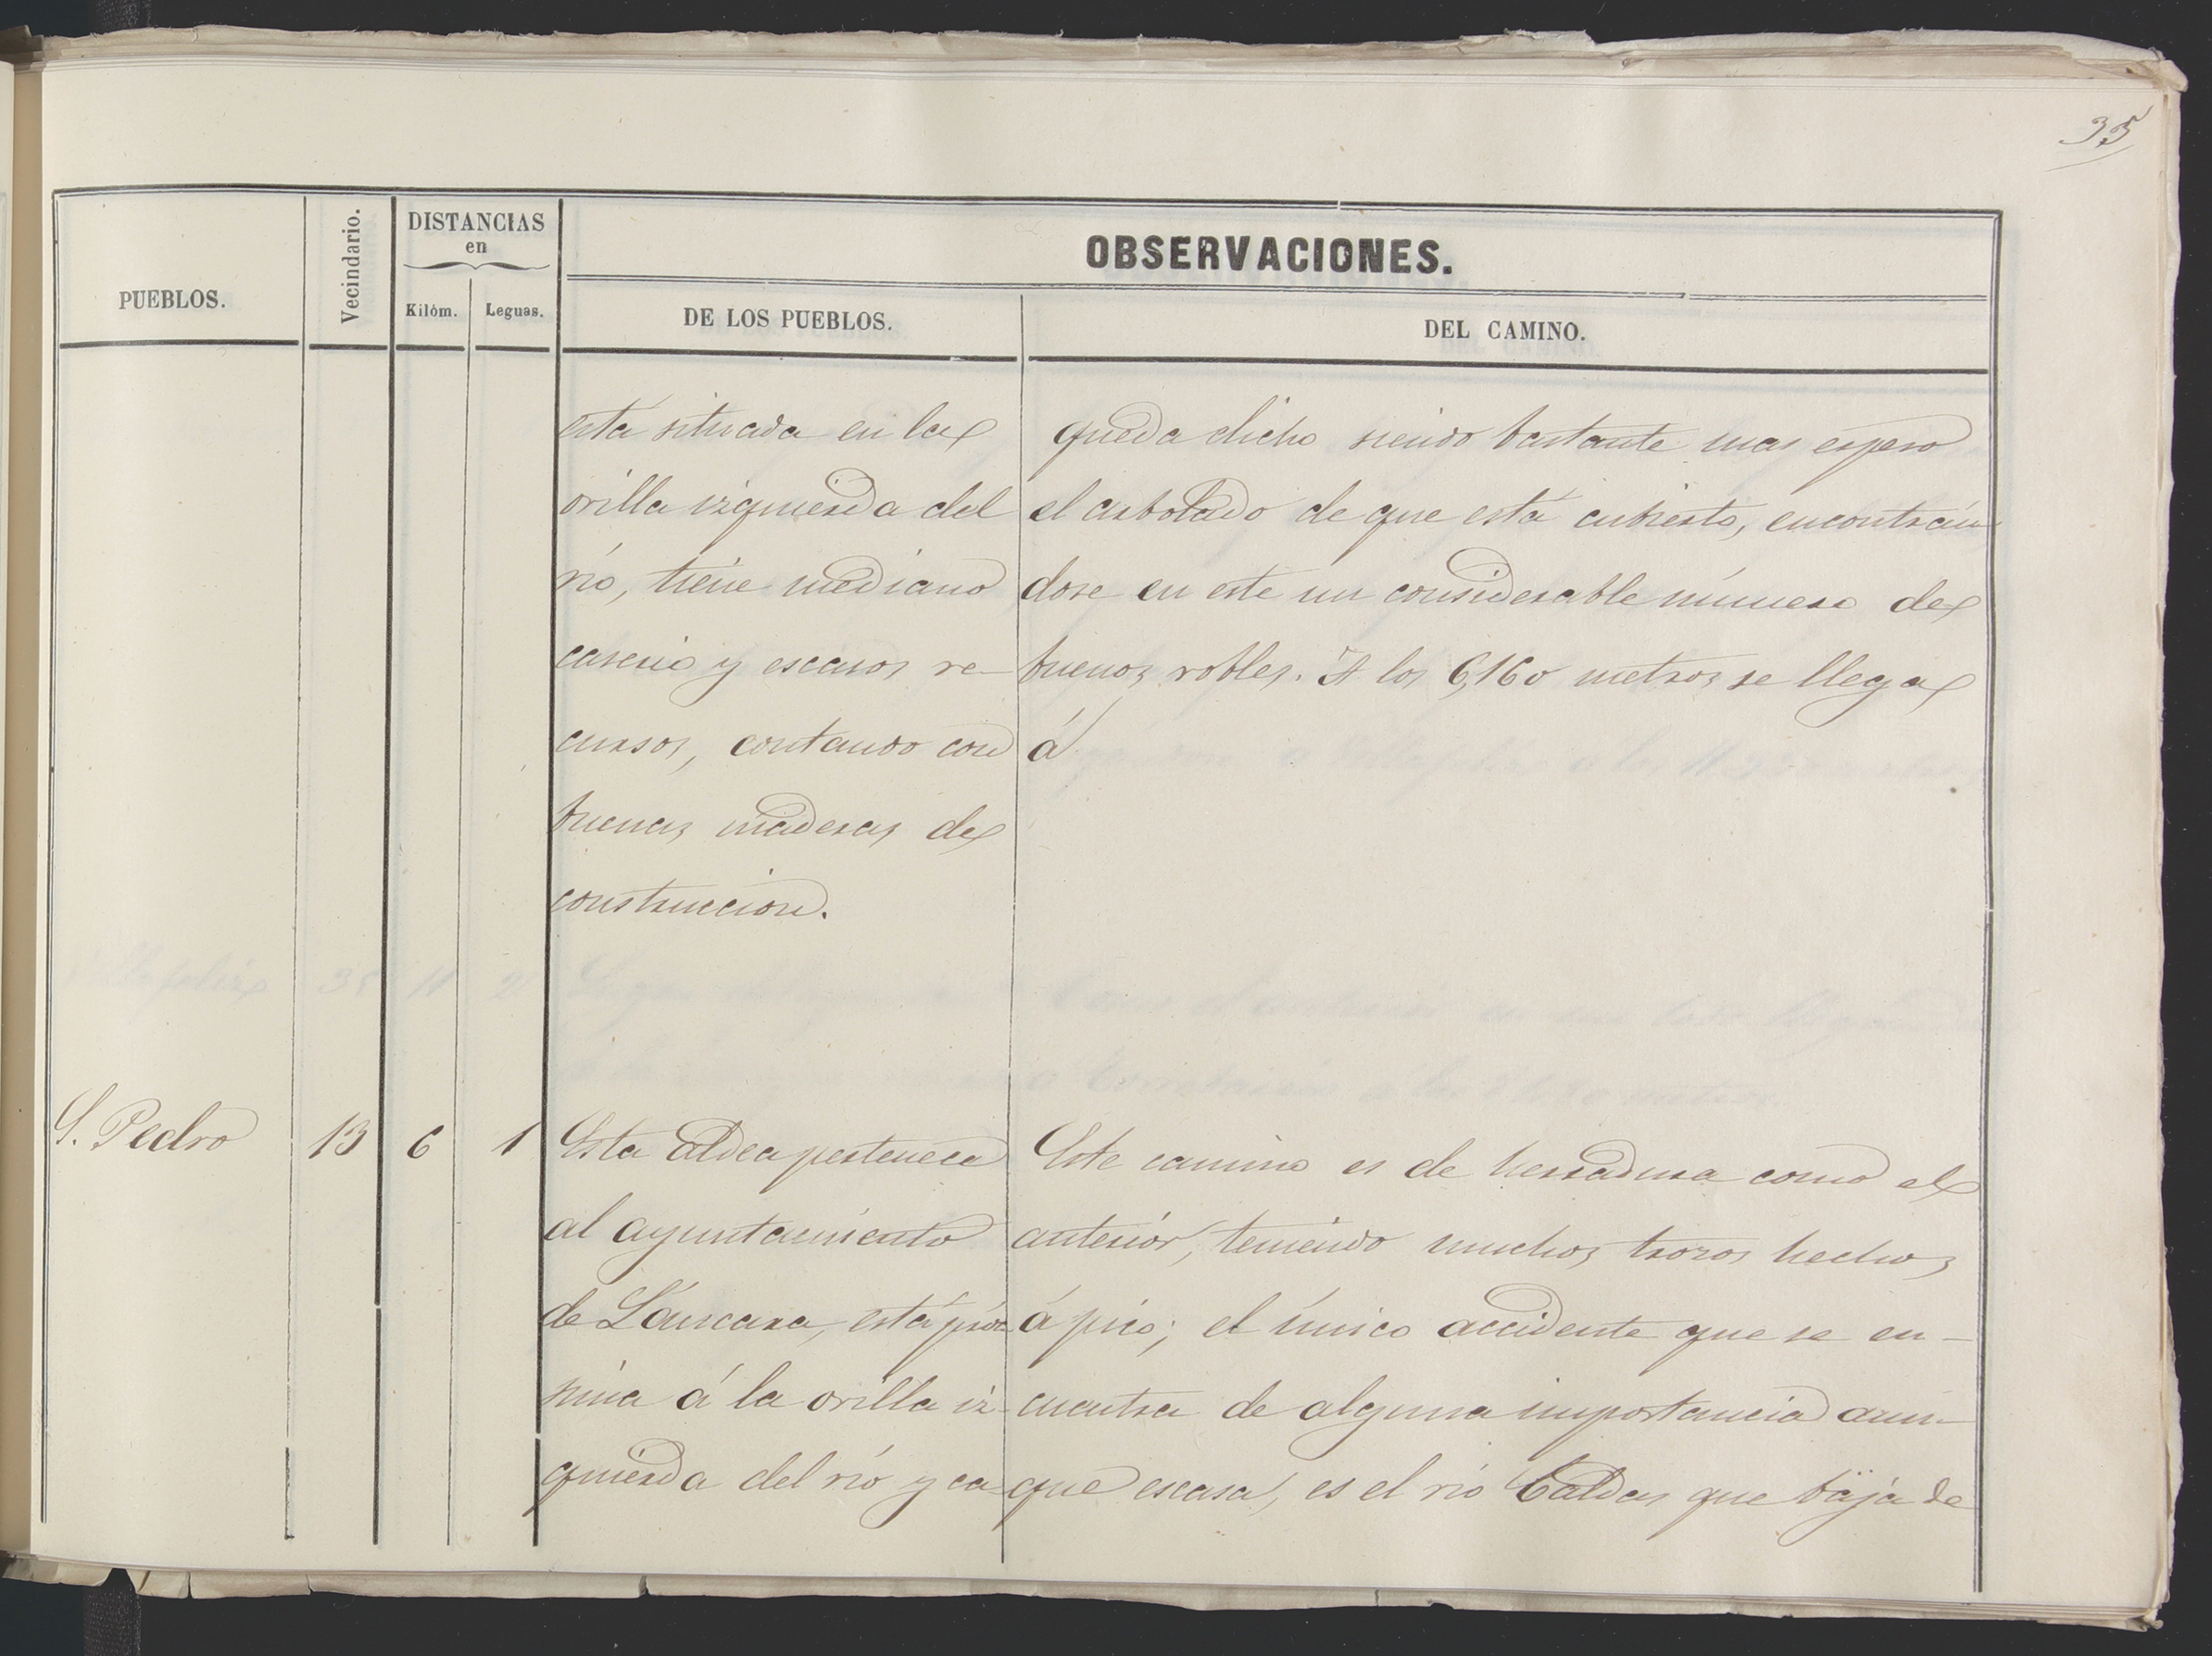 35
PUEBLOS.
Vecindario.
DISTANCIAS
en
Kilóm.
Leguas.
OBSERVACIONES.
DE LOS PUEBLOS.
DEL CAMINO.
está situada en la
orilla izquierda del
rio, tiene mediano
caserio y escasos re-
cursos, contando con
buenas maderas de
construccion.
queda dicho siendo bastante mas espeso
el arbolado de que está cubierto, encontrán
dose en este un considerable número de
buenos robles. A los 6,160 metros se llega
á
S. Pedro
13
6
1
Esta aldea pertenece
al ayuntamiento
de Láncara, está próc
sima á la orilla iz-
quierda del rio y ca-
Este camino es de herradura como el
anterior, teniendo muchos trozos hechos
á pico; el único accidente que se en-
cuentra de alguna importancia aun-
que escasa, es el rio Caldas que baja de